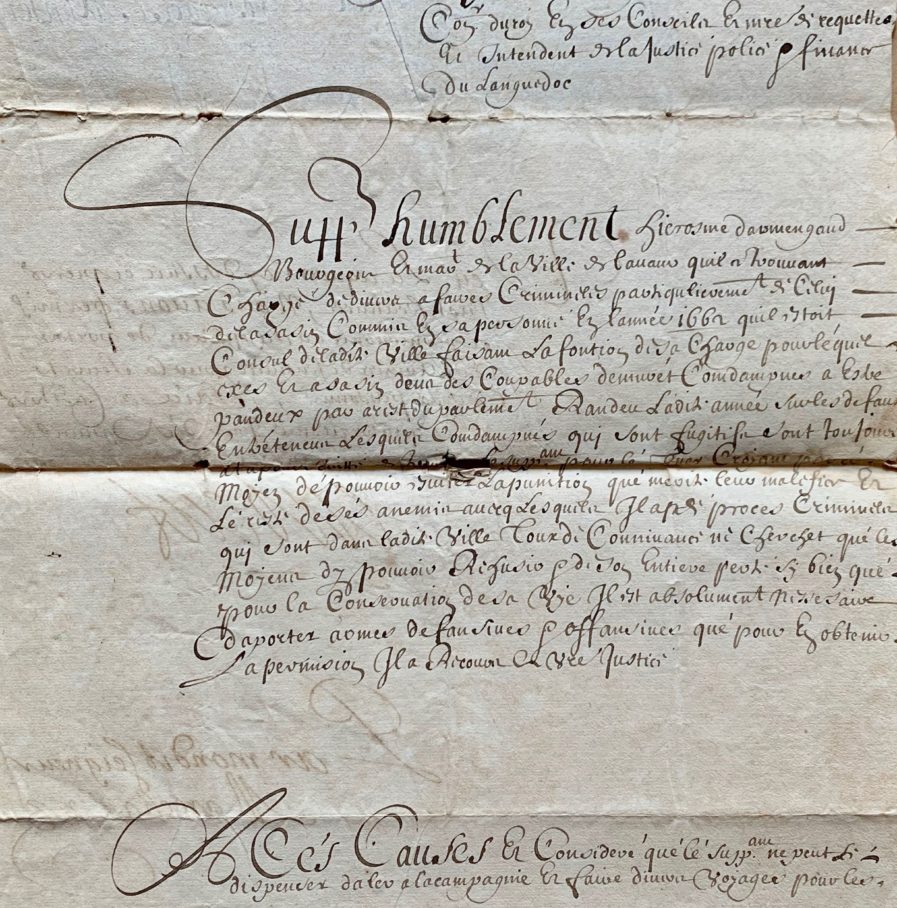 Con.er du roy En ses Conseilz Et mre de requettes
Et Intendent de la Justice police & finance
Du Languedoc
Supp.e humblement hierosme darmengaud
Bourgeois Et mar.t de la Ville de lavaur quil se trouvant
Chargé de divers afaires Criminelles partiqulierement de Celui
de lasasin Commis En sa personne En lannée 1662 quil estoit
Consul de ladite Ville faisant La fontion de sa Charge pour lequel
exes Et asasin deux des Coupables demuret Comdampnes a Estre
pandeux par arest du parlemt Randeu Ladite année sur les defaus
Lesquels Comdampnés qui sont fugitifs sont toujour
supp.ant pour le
Moyen de pouvoir eviter La punition que merite leur malefice Et
Le reste de ses anemis avecq Lesquels Il a de proces Criminels
qui sont dans ladite Ville Tour de Connivance ne Cherchet que les
Moyens dy pouvoir Rehusir & de son Entiere perte sy bien que
pour la Conservation de sa Vye Il est absolument nessesaire
Daporter armes defansives & offansives que pour En obtenir
La permision Il a Recours a Vre Justice
A Cés Causes Et Consideré que le supp.ant ne peut se
dispenser daler a la campagnie Et faire divers Voyages pour les